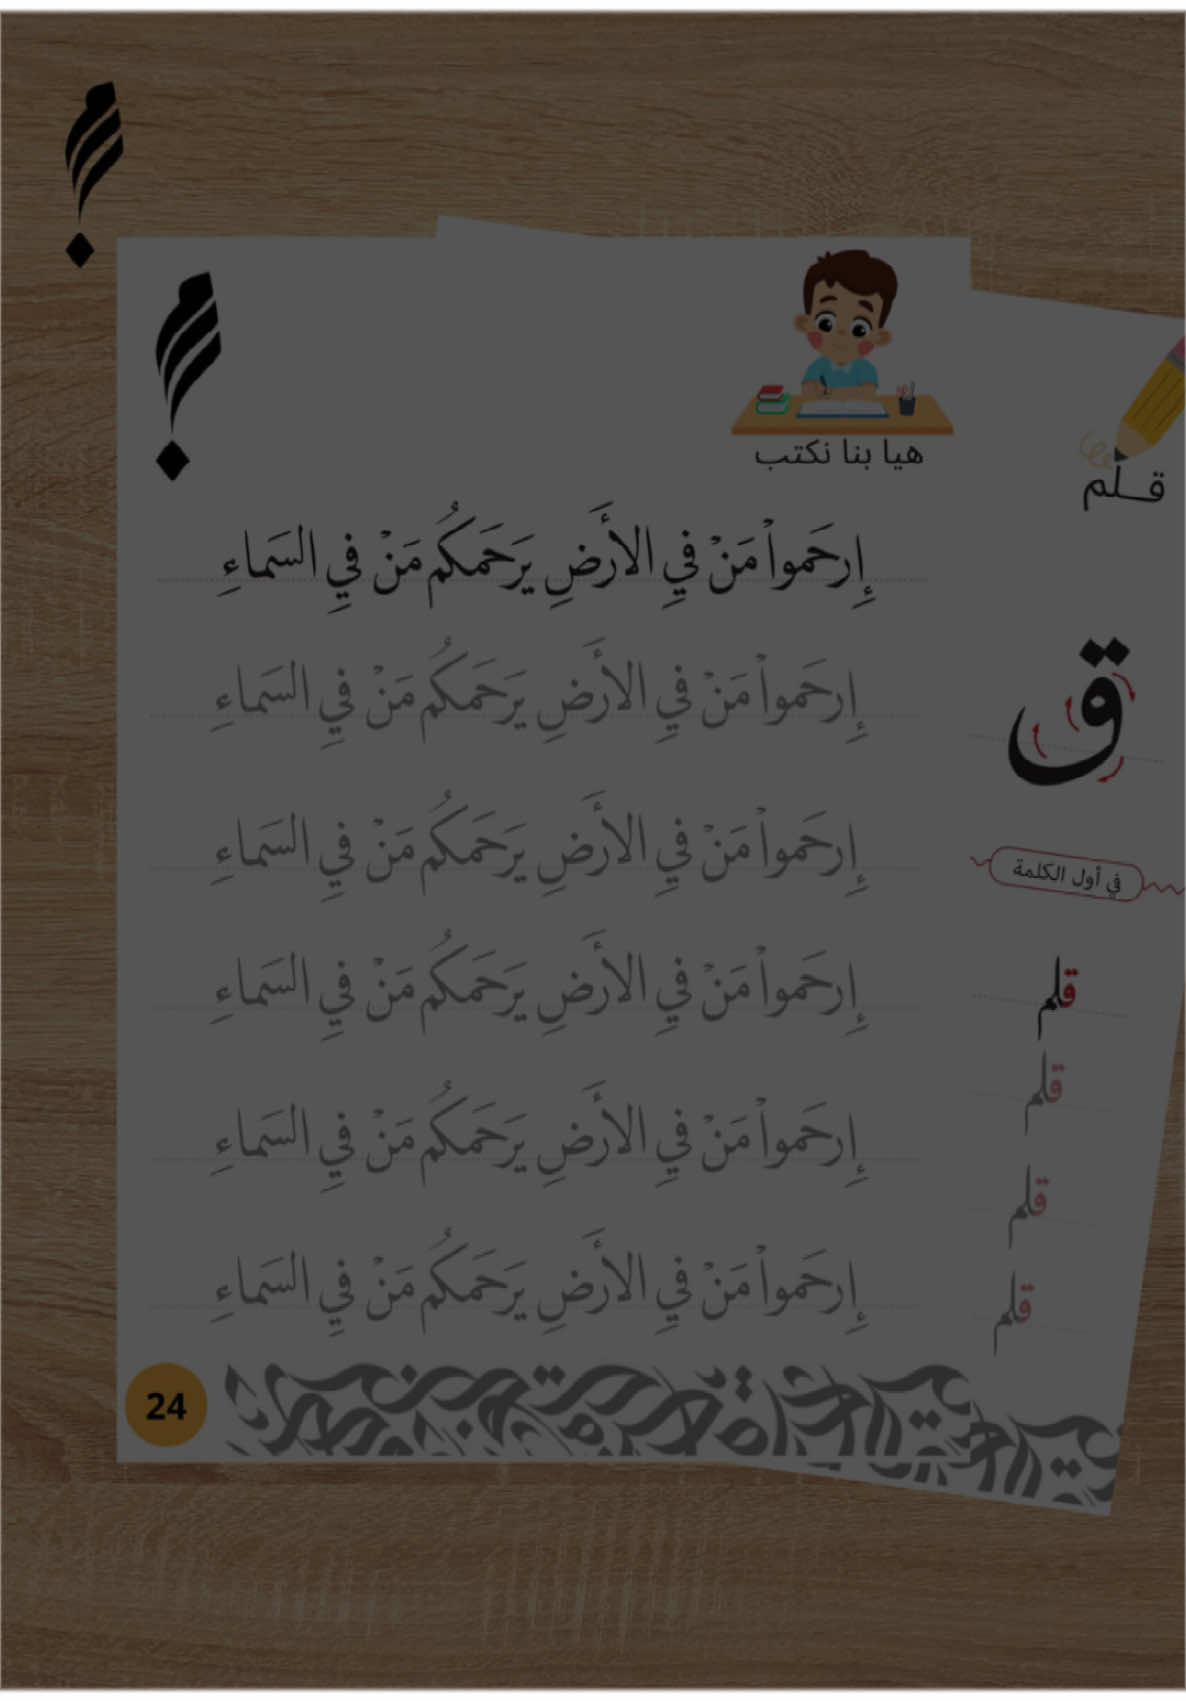 هيا بنا نكتب
إِرحَمواْ مَنْ فيِ الأَرَضِ يَرَحَمَكُم مَنْ فيِ السَمَاءِ
إِرحَمواْ مَنْ فيِ الأَرَضِ يَرَحَمَكُم مَنْ فيِ السَمَاءِ
إِرحَمواْ مَنْ فيِ الأَرَضِ يَرَحَمَكُم مَنْ فيِ السَمَاءِ
إِرحَمواْ مَنْ فيِ الأَرَضِ يَرَحَمَكُم مَنْ فيِ السَمَاءِ
إِرحَمواْ مَنْ فيِ الأَرَضِ يَرَحَمَكُم مَنْ فيِ السَمَاءِ
إِرحَمواْ مَنْ فيِ الأَرَضِ يَرَحَمَكُم مَنْ فيِ السَمَاءِ
24
قــلم
ق
في أول الكلمة
قلم
قلم
قلم
قلم